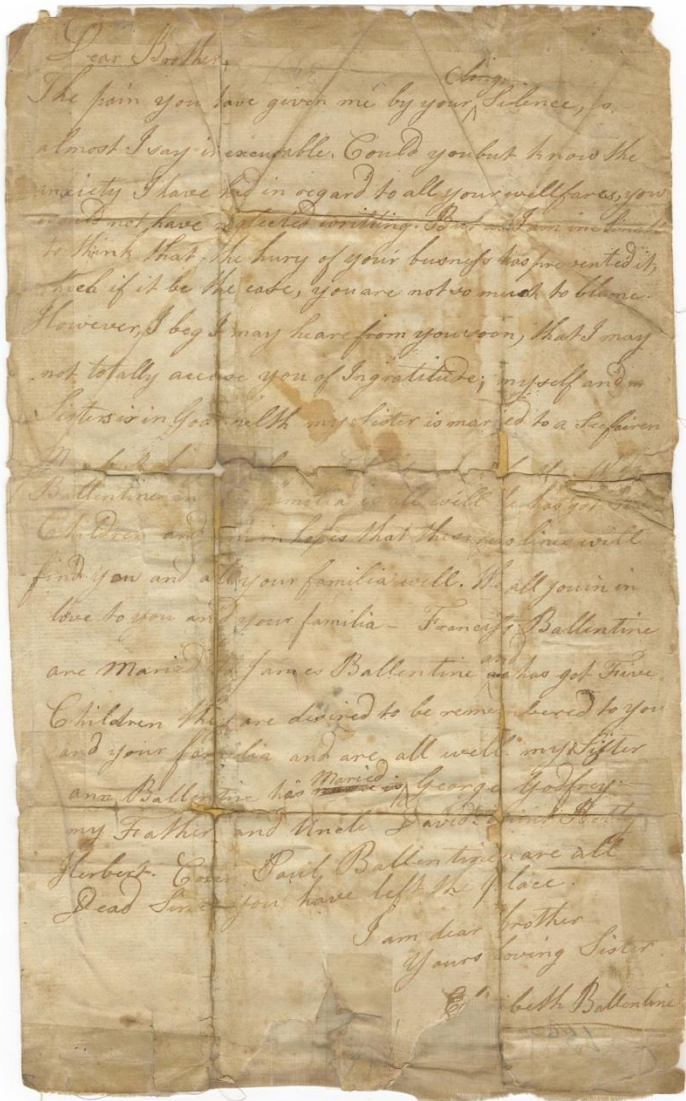 Dear Brother,
long
The pain you have given me by your Silence, is
almost I say inexcusable. Could you but know the
anxiety I have had in regard to all your willfares, you
not have neglected writting. But as I am
to think that the hury of your busness has prevented it,
which if it be the case, you are not so much to blame.
However, I beg I may heare from you soon, that I may
not totally accuse you of Ingratitude; myself and
Sisters is in Good helth my Sister is maried to a Seefairen
Ballentine familia well he has got
Children and am in hopes that these line will
find you and all your familia well. We all youin in
love to you and your familia - Ballentine
are Maried to James Ballentine and has got Faive
Children they are desired to be remembered to you
and your familia and are all well. my Sister
ann Ballentine has Maried George Godfrey.
my Father and Uncle David Betty
Herbert. Paul Ballentine are all
Dead Since you have left the place.
I am dear brother
Yours loving Sister
Elizabeth Ballentine